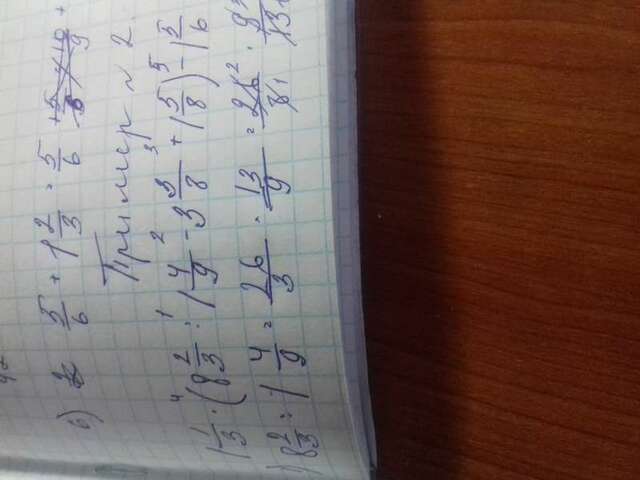 6) 5/6 + 1 2/3 = 5/6 +
Пример № 2.
1 1/3 · (8 2/3 : 1 4/9 - 3 3/8 + 1 5/8) - 1 5/6
8 2/3 : 1 4/9 = 26/3 : 13/9 = 26 2/3 1 ·